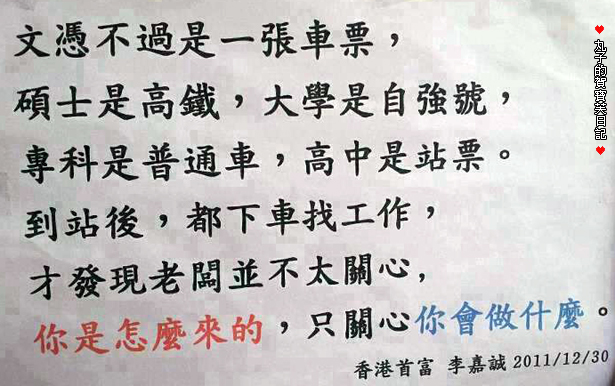 文憑不過是一張車票，
碩士是高鐵，大學是自強號，
專科是普通車，高中是站票。
到站後，都下車找工作，
才發現老闆並不太關心，
你是怎麼來的，只關心你會做什麼。
香港首富 李嘉誠 2011/12/30
♥丸子的寶寶英日記♥